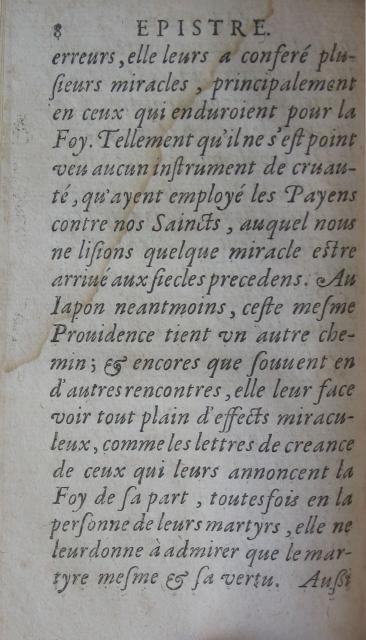 8 EPISTRE.
erreurs, elle leurs a conferé plu-
ſieurs miracles, principalement
en ceux qui enduroient pour la
Foy. Tellement qu'il ne s'eſt point
veu aucun inſtrument de cruau-
té, qu'ayent employé les Payens
contre nos Saincts, auquel nous
ne liſions quelque miracle eſtre
arriué aux ſiecles precedens. Au
Iapon neantmoins, ceſte meſme
Prouidence tient vn autre che-
min; & encores que ſouuent en
d'autres rencontres, elle leur face
voir tout plain d'effects miracu-
leux, comme les lettres de creance
de ceux qui leurs annoncent la
Foy de ſa part, toutesfois en la
perſonne de leurs martyrs, elle ne
leur donne à admirer que le mar-
tyre meſme & ſa vertu. Auſſi